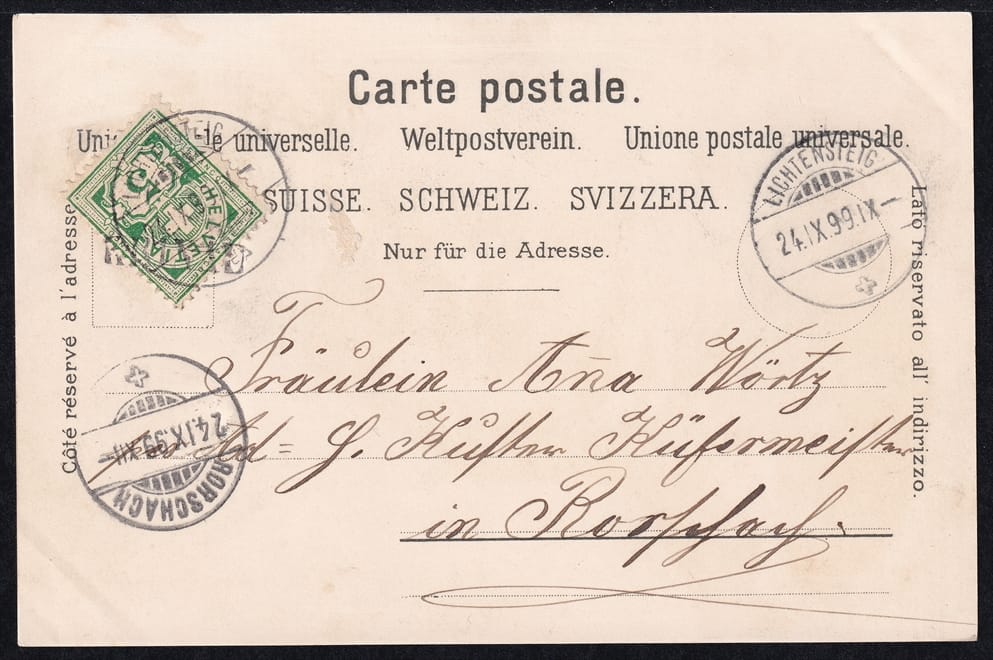 Carte postale.
universelle. Weltpostverein. Unione postale universale.
SUISSE. SCHWEIZ. SVIZZERA.
Nur für die Adresse.
Côté réservé à l'adresse
Lato riservato all' indirizzo.
HELVETIA
LICHTENSTEIG
24.IX.99.IX—
Fräulein Aña Wörtz
Ad= G. Kuster Küfermeister
in Rorschach.
RORSCHACH
24.IX.99.XII—